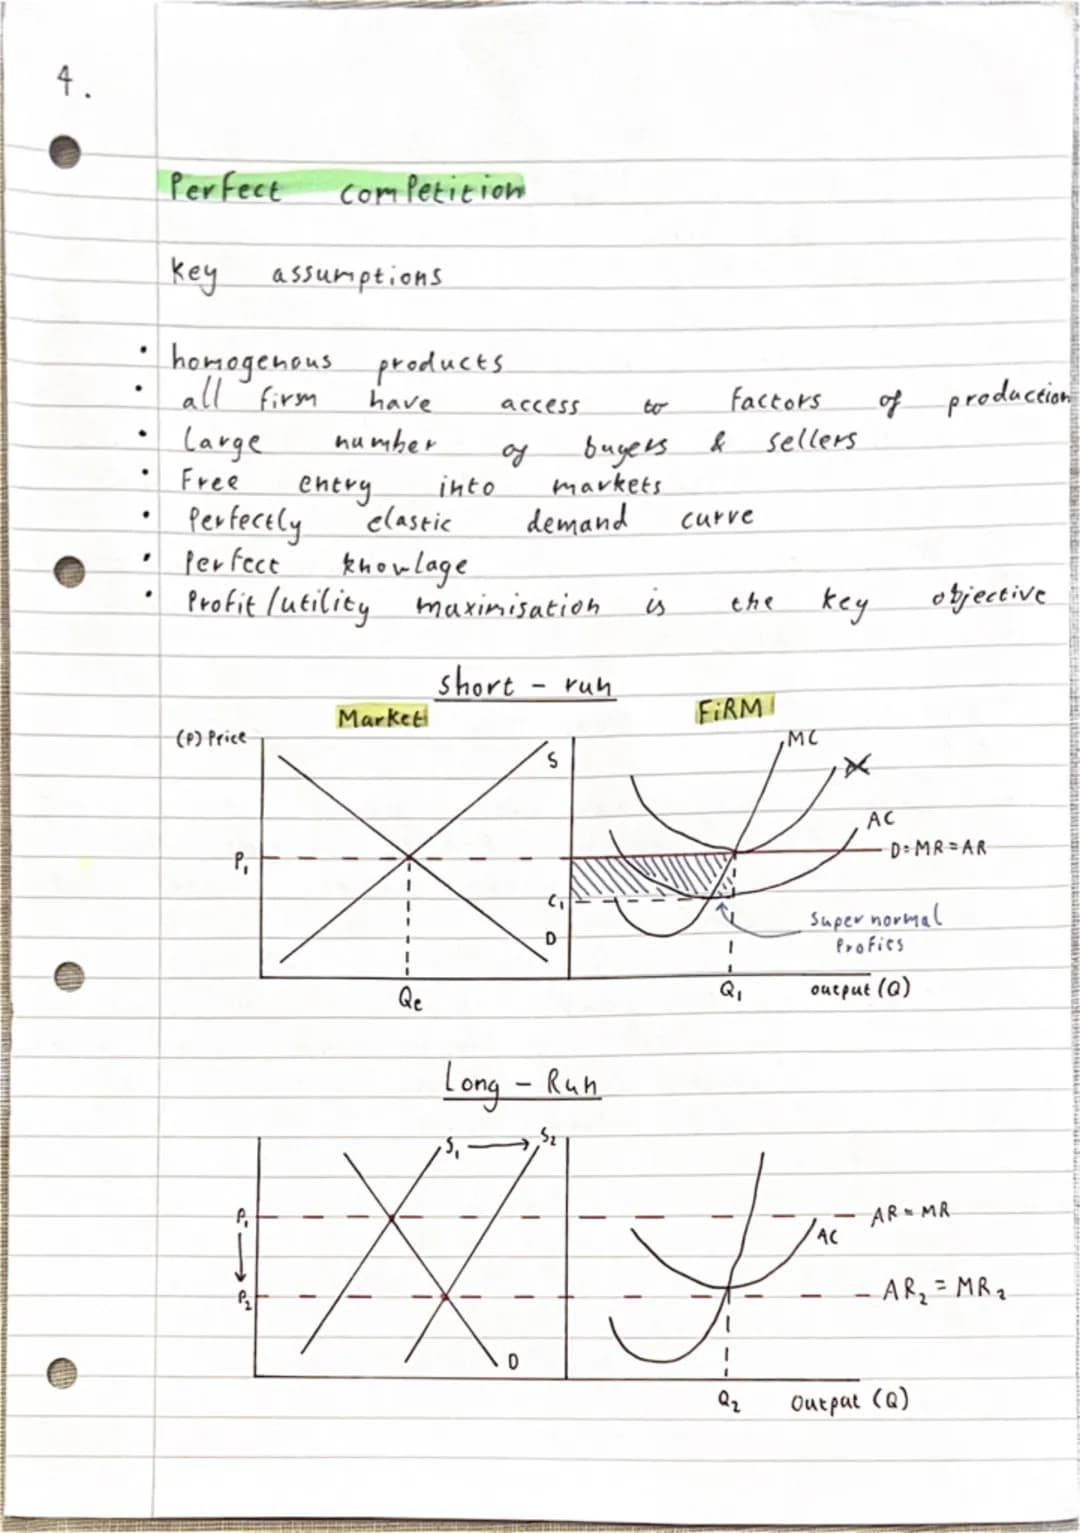 4.
Perfect competition
key assumptions
• homogenous products
• all firm have access to factors of production
• Large number of buyers & sellers
• Free entry into markets
• Perfectly elastic demand curve
• Perfect knowlage
• Profit/utility maximisation is the key objective
short - run
Market FiRM
(P) Price S MC
AC
P₁ D=MR=AR
C₁
D Super normal
Profits
Qe Q₁ output (Q)
Long - Run
S₁ → S₂
P₁ AR = MR
AC
P₂ AR₂ = MR₂
D
Q₂ Output (Q)